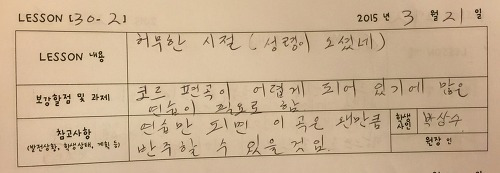 LESSON [30-2] 2015년 3월 21일
LESSON 내용
허무한 시절 (성령이 오셨네)
보강할점 및 과제
코드 편곡이 어렵게 되어 있기에 많은
연습이 필요로 함
참고사항
(발전상황, 학생상태, 계획 등)
연습만 되면 이 곡은 왠만큼
반주할 수 있을것임.
학생 사인 박상수
원장 인